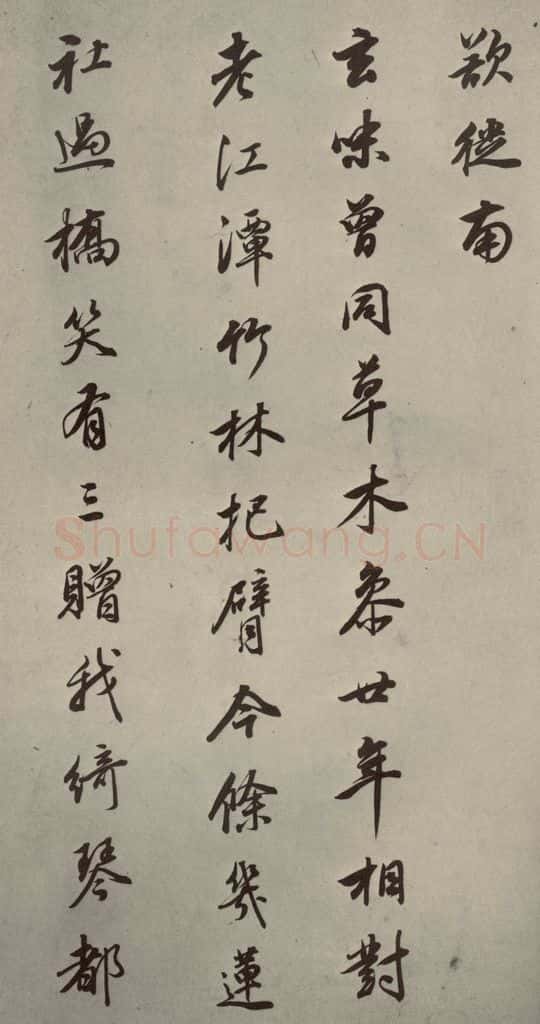 欲從南
玄味曾同草木參廿年相對
老江潭竹林把臂今餘幾蓮
社過橋笑有三贈我綺琴都
Shufawang.CN